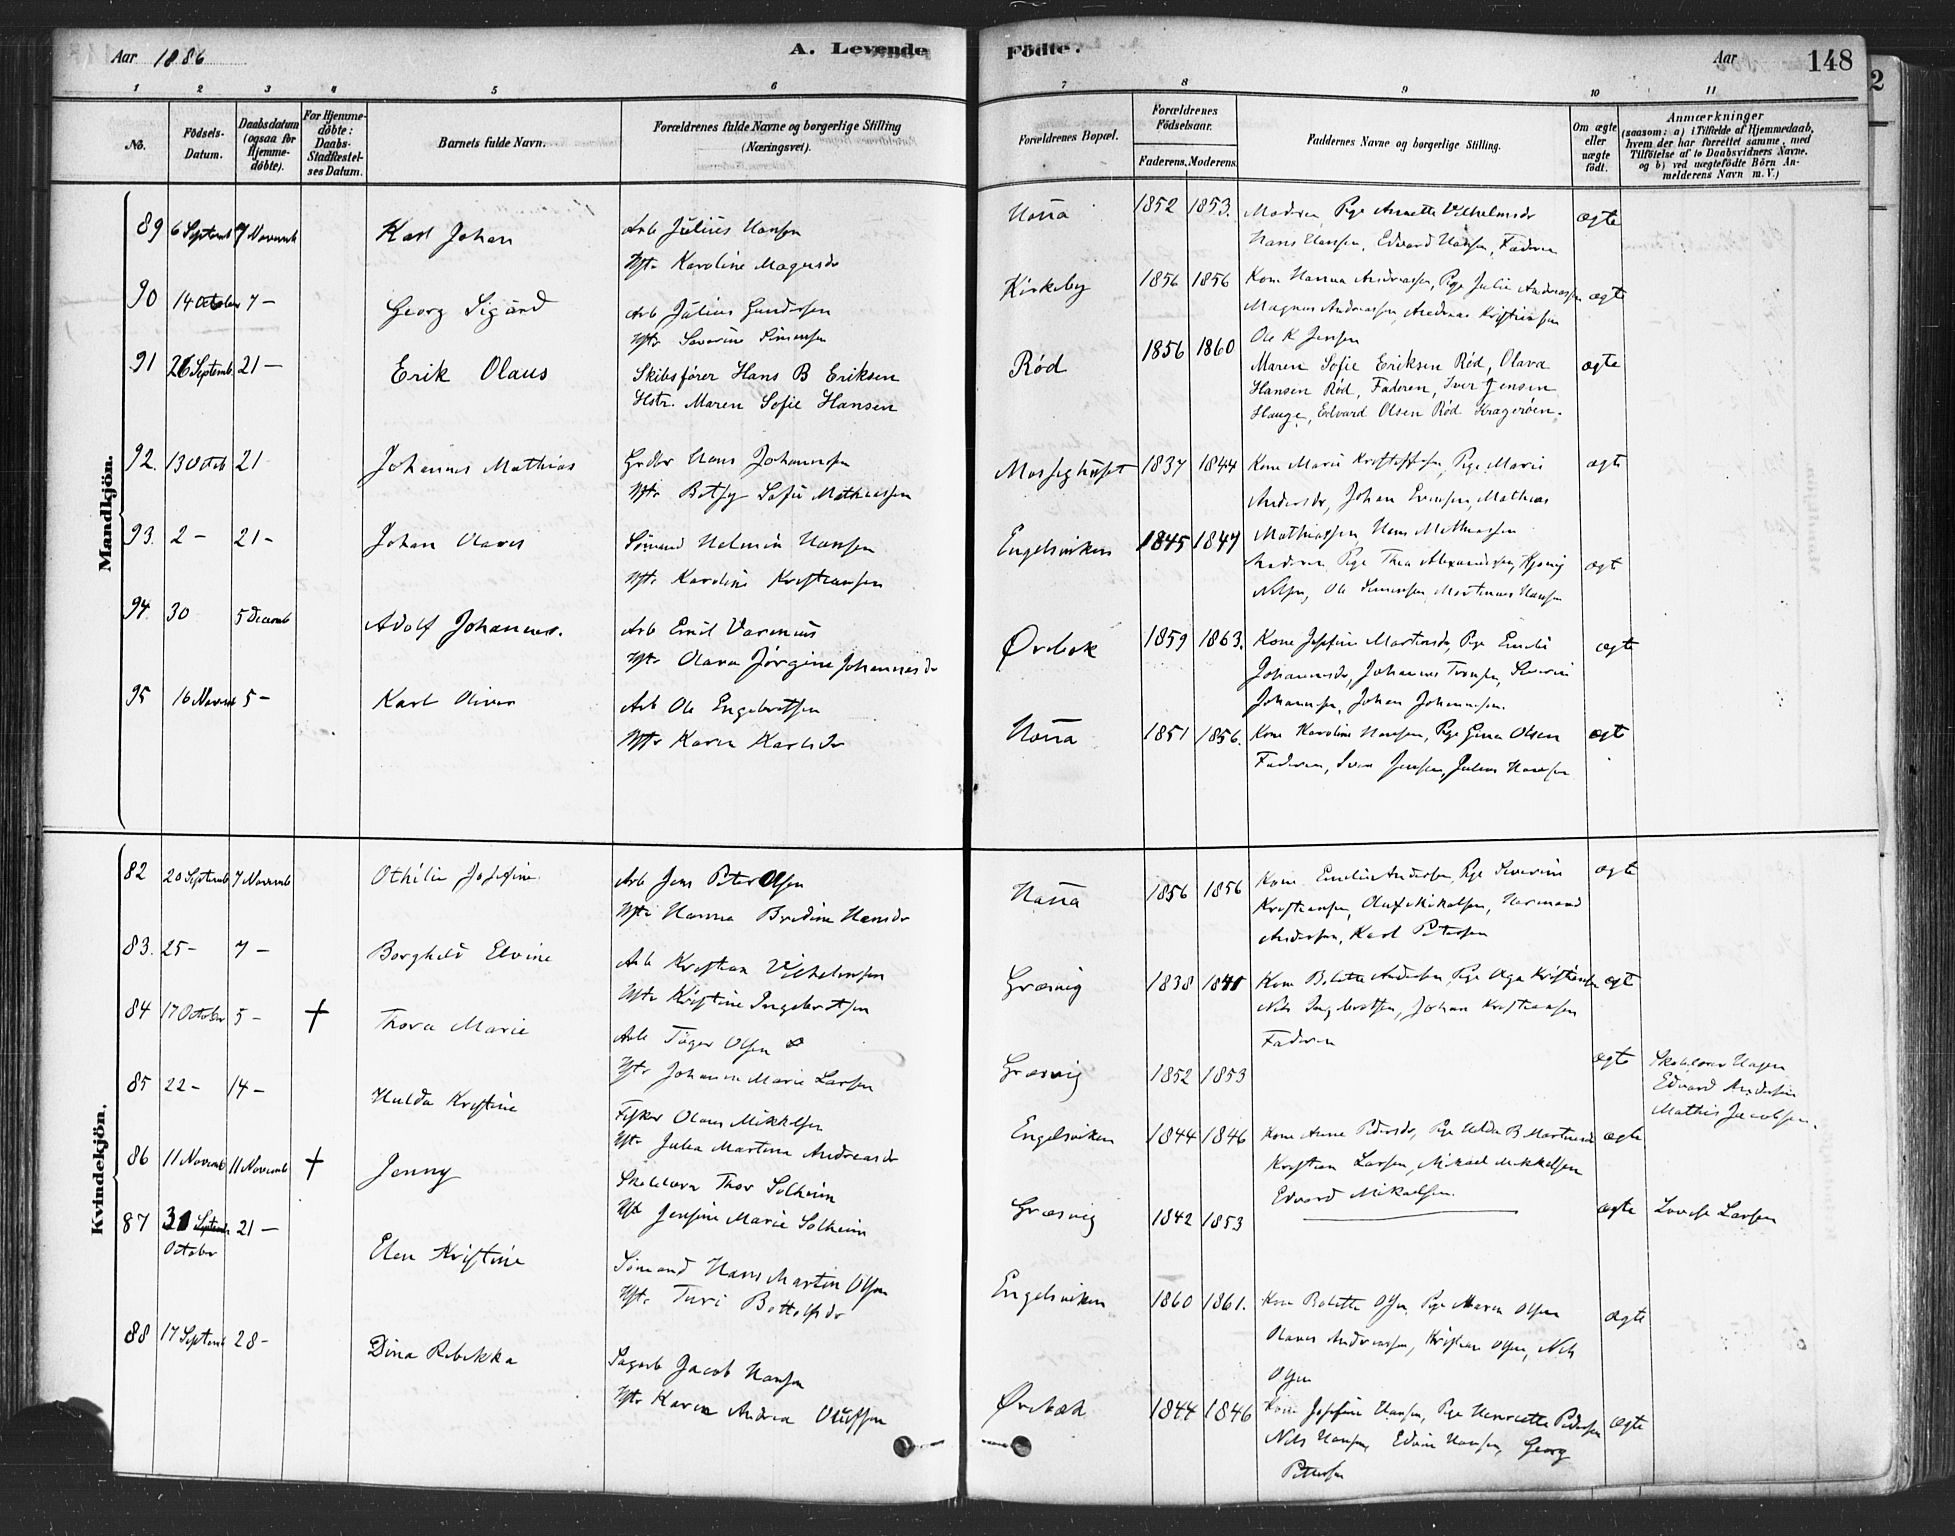 Aar 1886 A. Levende Födte. Aar 148
2
1 2 3 4 5 6 7 8 9 10 11
No. Födsels-Datum. Daabsdatum (ogsaa for Hjemmedöbte). For Hjemmedöbte: Daabs-Stadfestelses Datum. Barnets fulde Navn. Forældrenes fulde Navne og borgerlige Stilling (Næringsvei). Forældrenes Bopæl. Forældrenes Födselsaar. Faderens. Moderens. Faddernes Navne og borgerlige Stilling. Om ægte eller uægte födt. Anmærkninger (saasom: a) i Tilfælde af Hjemmedaab, hvem der har forrettet samme, med Tilföielse af to Daabsvidners Navne, og b) ved uægtefödte Börn Anmelderens Navn m. V.)
Mandkjön.
89 6 Septemb 7 Novemb Karl Johan Arb Julius Hansen Houa 1852 1853. Moderen, Pige Annette Vilhelmsdr ægte
Hstr Karoline Magnusdr Hans Hansen, Edvard Hansen, Faderen
90 14 October 7 – Georg Sigurd Arb Julius Gundersen Kirkeby 1856 1856 Kone Hanna Andreassen, Pige Julie Andreassen ægte
Hstr Severine Simensen Magnus Andreassen, Andreas Kristiansen
Ole K Jensen
91 26 Septemb. 21 – Erik Olaus Skibsfører Hans B Eriksen Rød 1856 1860 Maren Sofie Eriksen Rød, Olava ægte
Hstr. Maren Sofie Hansen Hansen Rød, Faderen, Iver Jensen
Hauge, Edvard Olsen Rød Kragerøen.
92. 13 Octob 21 Johannes Mathias Hans Johannsen 1837 1844 Kone Marie Kristoffersen, Pige Marie ægte
Hstr Betsy Sofie Mathiassen Andersdr, Johan Evensen, Mathias
Mathiassen, Hans Mathiassen
93. 2 – 21 – Johan Olaves Sømand Helmin Hansen Engelsviken 1845 1847 Moderen, Pige Thea Alexandersen, ægt
Hstr Karoline Kristiansen Nilsen, Ole Simensen, Martinus Hansen
94. 30 5 Decemb Adolf Johannes. Arb Emil Varenius Ørebæk 1859 1863. Kone Josefine Martinsdr, Pige Emilie ægte
Hstr Olava Jørgine Johannesdr Johannesdr, Johannes Tronsen, Severin
Johannesen, Johan Johannesen.
95 16 Novemb 5 – Karl Oliver Arb Ole Engebretsen Houa 1851 1856. Kone Karoline Hansen, Pige Gina Olsen ægt
Hstr Karen Karlsdr Faderen, Iver Jensen, Julius Hansen
Kvindekjön.
82 20 Septemb 7 Novemb Othilie Josefine Arb Jens Peter Olsen Houa 1856 1856 Kone Emelie Andersen, Pige Severine ægte
Hstr Hanna Bredine Hansdr Kristiansen, Oluf Mikalsen, Hermand
Andersen, Karl Petersen
83. 25 – 7 – Borghild Elvine Arb Kristian Vilhelmsen Græsvig 1838 1841 Kone Bolette Andersen, Pige Olga Kristiansen ægt
Hstr Kristine Ingebretsen Nils Ingebretsen, Johan Kristiansen
Faderen
84 17 October 5 – † Thora Marie Arb Tøger Olsen Græsvig 1852 1853 ægte
Hstr Johanne Marie Larsen Edvard Andersen
Mathis Jacobsen.
85 22 – 14 – Hulda Kristine Fisker Olaus Mikkelsen Engelsviken 1844 1846 Kone Anne Pedersdr, Pige Hilda B Martinsen ægte
Hstr Julia Martina Andreasdr Kristian Larsen, Mikael Mikkelsen
Edvard Mikaelsen.
86 11 Novemb 11 Novemb † Jenny Skolelærer Thor Solheim Græsvig 1842 1853 ægte Lovise Larsen
Hstr Jensine Marie Solheim
87 31 Septemb 21 – Elen Kristine Sømand Hans Martin Olsen Engelsviken 1860 1861. Kone Bolette Olsen, Pige Maren Olsen ægte
October Hstr Turi Bottolfsdr Olaves Andreassen, Kristian Olsen, Nils
Olsen
88 17 Septemb 28 – Dina Rebekka Sagarb Jacob Hansen Ørebæk 1844 1846 Kone Josefine Hansen, Pige Henriette Pedersen ægte
Hstr Karen Andrea Olufsen Nils Hansen, Edvin Hansen, Georg
Pettersen